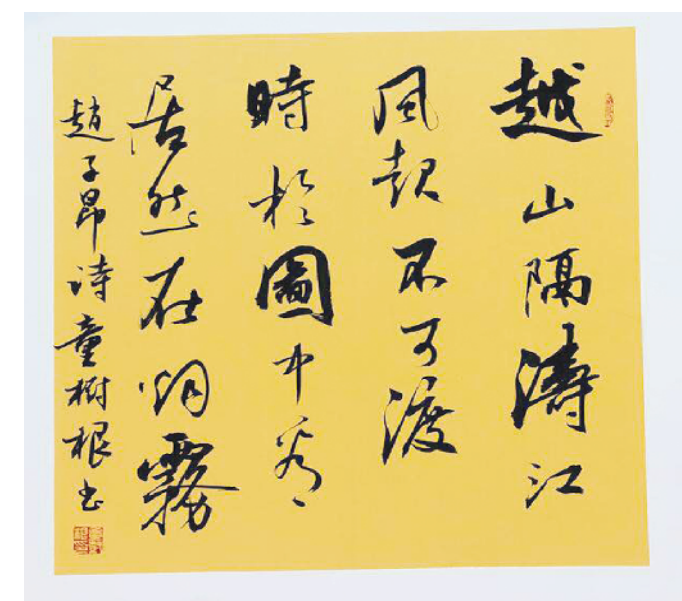 越山隔濤江
風起不可渡
時於圖中看
居然在烟霧
趙子昂詩童樹根書